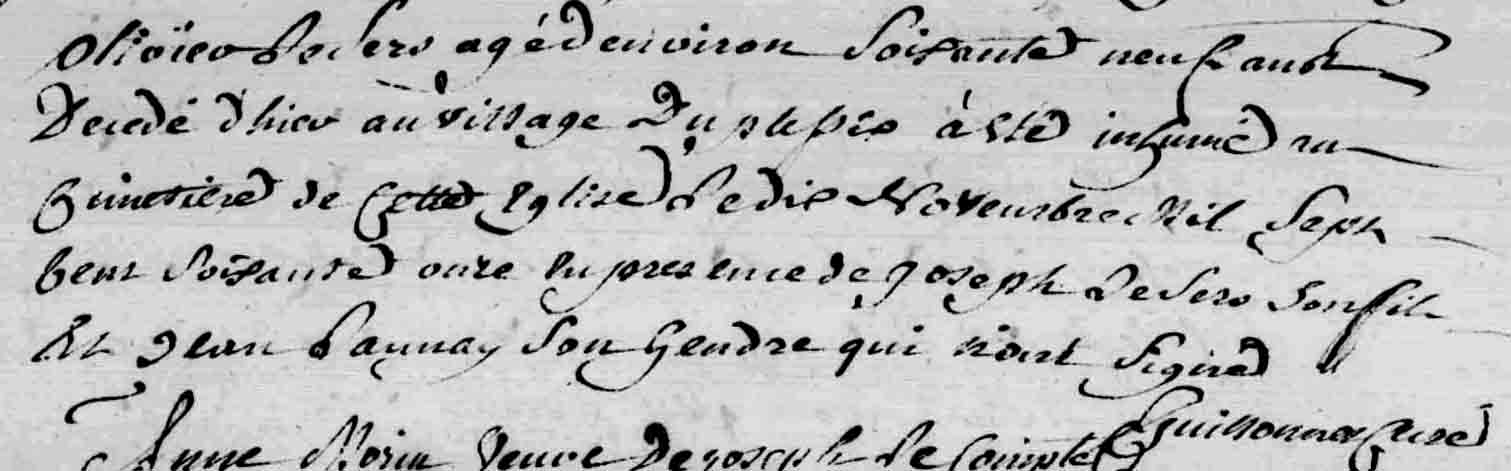 olivier Le Sers agé denviron Soisante neuf ans
Decedé dhier au village Duplessis à été inhumé au
Cimetiere de Cette Eglise Le dix Novembre Mil Sept
Cent Soisante onze En presence de Joseph Le Sers Son fils
Et Jean Launay Son Gendre qui n'ont Signé
Anne Morin Veuve De Joseph Le Comte
Curé